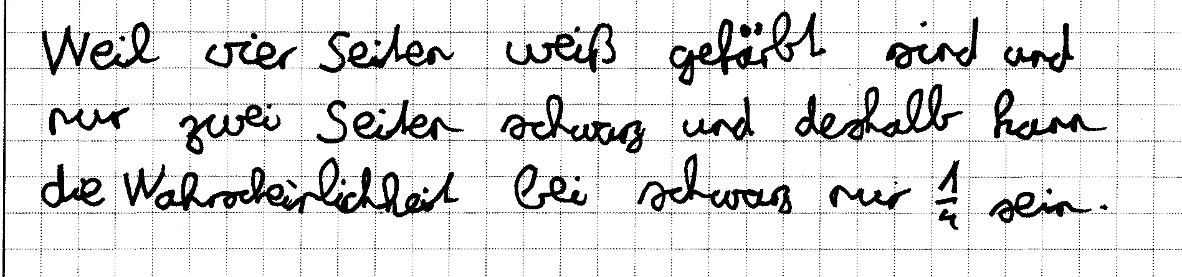 Weil vier Seiten weiß gefärbt sind und
nur zwei Seiten schwarz und deshalb kann
die Wahrscheinlichkeit bei schwarz nur 1/4 sein.